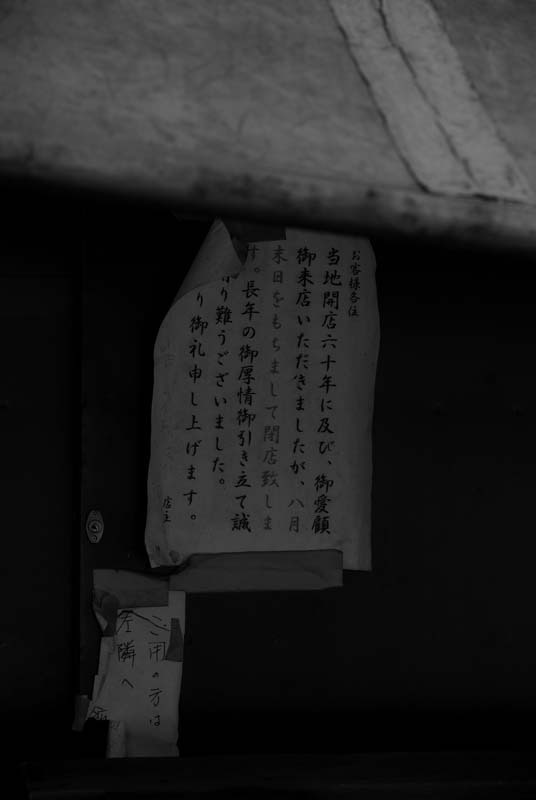 お客様各位
当地開店六十年に及び、御愛顧
御来店いただきましたが、八月
末日をもちまして閉店致しま
す。長年の御厚情御引き立て誠
り難うございました。
り御礼申し上げます。
店主
ご用の方は
左隣へ